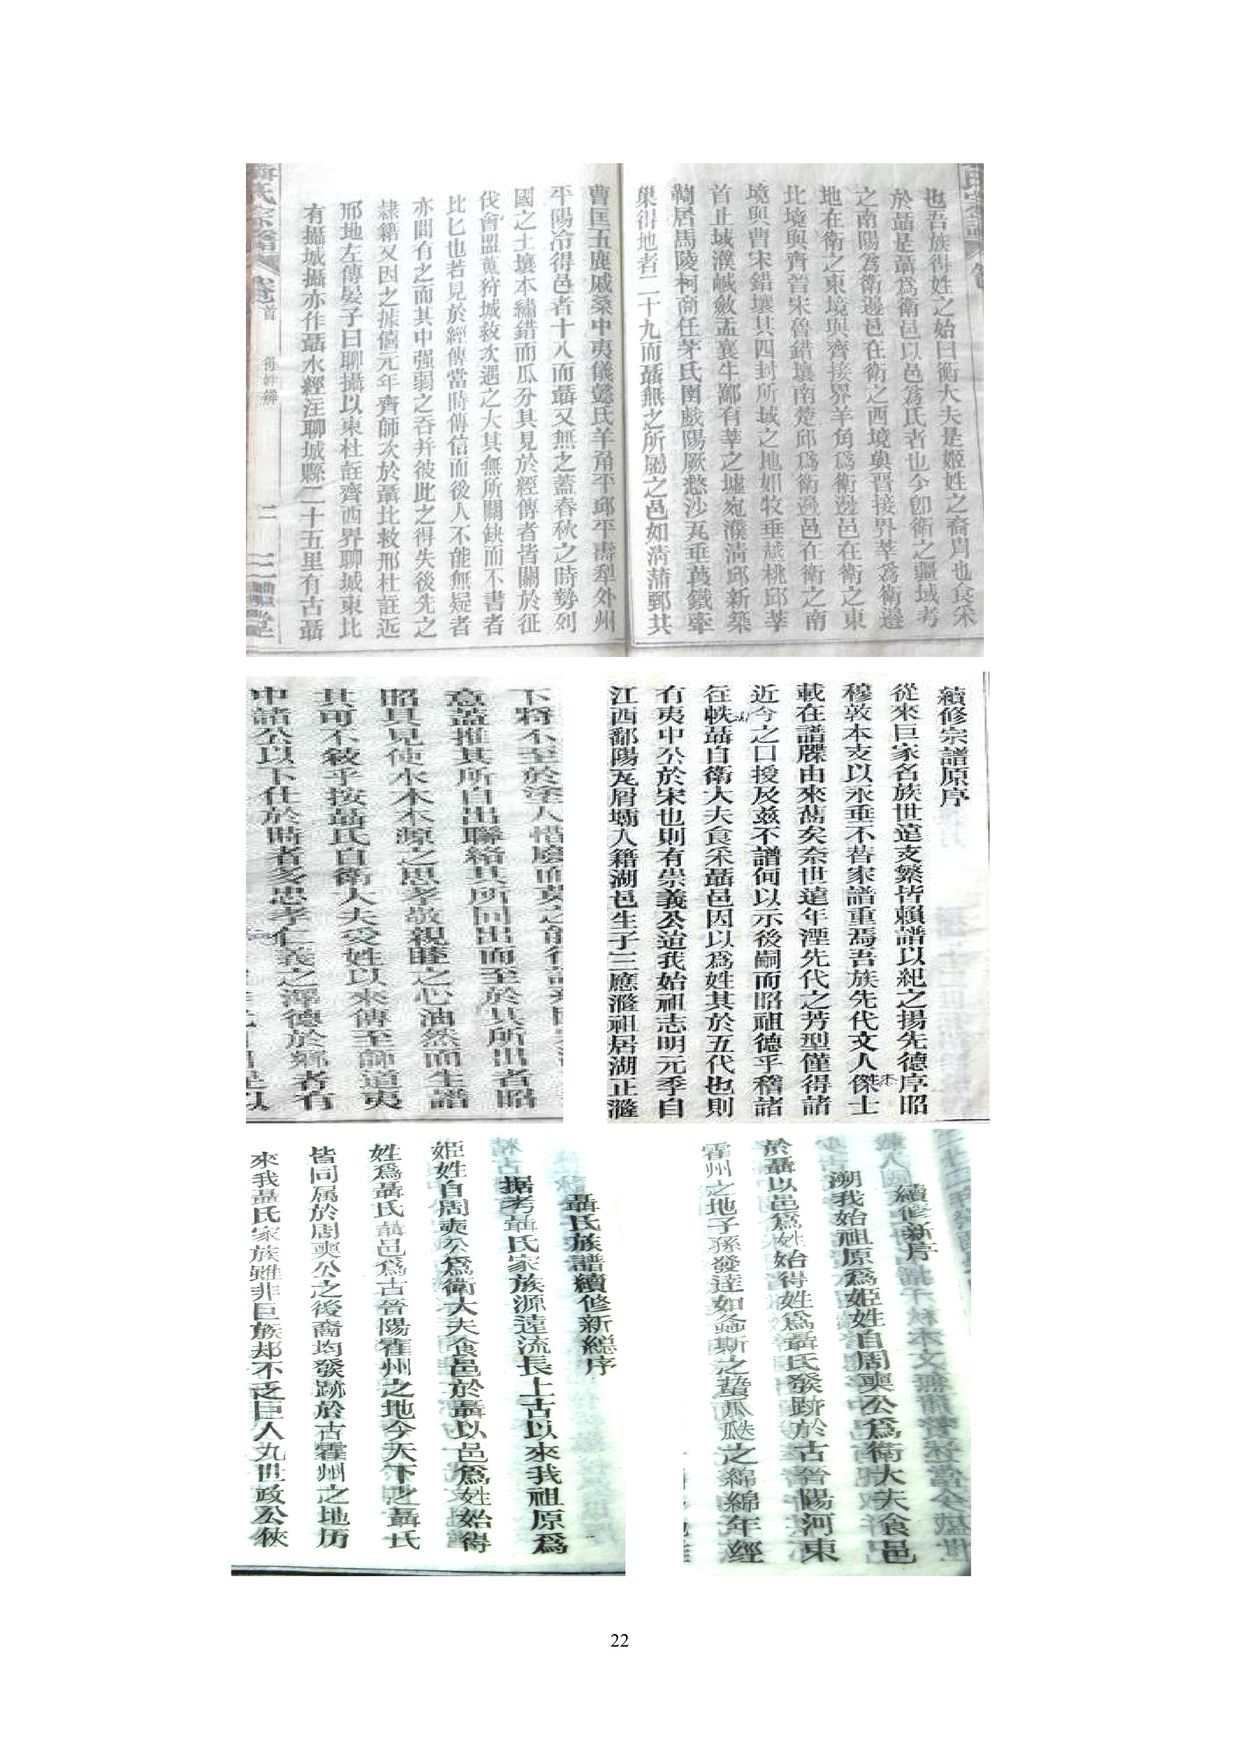 也吾族得姓之始曰衛大夫是姬姓之裔胄也食采
於聶是聶爲衛邑以邑爲氏者也今卽衛之疆域考
之南陽爲衛邊邑在衛之西境與晋接界莘爲衛邊
地在衛之東境與齊接界羊角爲衛邊邑在衛之東
比境與齊晉宋魯錯壤南楚邱爲衛邊邑在衛之南
境與曹宋錯壤其四封所域之地如牧垂越桃邱莘
首止城濮鹹斂盂襄牛鄴有莘之墟宛濮淸邱新築
鞫居馬陵柯商任茅氏圉戲陽厥憗沙瓦垂葭鐵牽
巢得地者二十九而聶無之所屬之邑如淸蒲鄄共
曹匡五鹿戚桑中夷儀懿氏羊角平邱平壽犁外州
平陽泠得邑者十八而聶又無之蓋春秋之時勢列
國之土壤本繡錯而瓜分其見於經傳者皆關於征
伐會盟蒐狩城救次遇之大其無所關缺而不書者
比比也若見於經傳當時傳信而後人不能無疑者
亦間有之而其中强弱之吞并彼此之得失後先之
隷籍又因之據僖元年齊師次於聶北救邢杜註近
邢地左傳晏子曰聊攝以東杜註齊西界聊城東北
有攝城攝亦作聶水經注聊城縣二十五里有古聶
續修宗譜原序
從來巨家名族世遠支繁皆賴譜以紀之揚先德序昭
穆敦本支以永垂不替家譜重焉吾族先代文人傑士
載在譜牒由來舊矣奈世遠年湮先代之芳型僅得諸
近今之口授及茲不譜何以示後嗣而昭祖德乎稽諸
往帙聶自衛大夫食采聶邑因以爲姓其於五代也則
有夷中公於宋也則有崇義公迨我始祖志明元季自
江西鄱陽瓦屑壩入籍湖邑生子三應滙祖居湖止滙
意蓋推其所自出聯絡其所同出而至於其所出者昭
昭具見使水木本源之思孝敬親睦之心油然而生譜
其可不敘乎按聶氏自衛大夫受姓以來傳至師道夷
中諸公以下仕於時者多忠孝仁義之澤德於鄉者有
續修新序
溯我始祖原爲姬姓自周奭公爲衛大夫食邑
於聶以邑爲姓始得姓爲聶氏發跡於古晉陽河東
霍州之地子孫發達如螽斯之蟄瓜瓞之綿綿年經
聶氏族譜續修新總序
据考聶氏家族源遠流長上古以來我祖原爲
姬姓自周奭公爲衛大夫食邑於聶以邑爲姓始得
姓爲聶氏聶邑爲古晉陽霍州之地今天下之聶氏
皆同属於周奭公之後裔均發跡於古霍州之地历
來我聶氏家族雖非巨族却不乏巨人九世政公俠
22